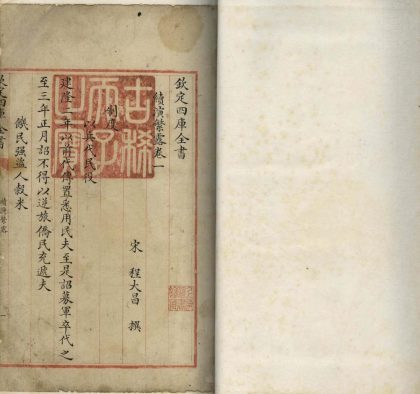 欽定四庫全書
續演繁露卷一
宋 程大昌 撰
制度
以兵代民役
建隆二年以前代傳置悉用民夫至是詔募軍卒代之
至三年正月詔不得以逆旅僑民充遞夫
饑民强盜人穀米
欽定四庫全書
續演繁露
古稀天子之寶